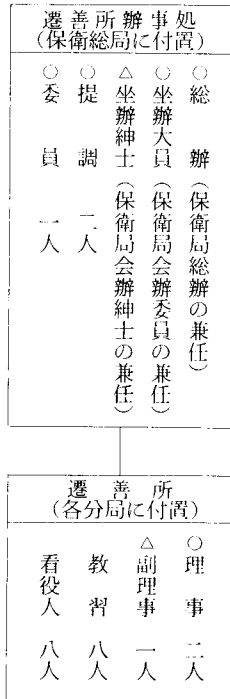 遷善所辦事処
(保衛総局に付置)
○総辦(保衛局総辦の兼任)
○坐辦大員(保衛局会辦委員の兼任)
△坐辦紳士(保衛局会辦紳士の兼任)
○提調 二人
○委員 一人
遷善所
(各分局に付置)
○理事 二人
△副理事 一人
教習 八人
看役人 八人